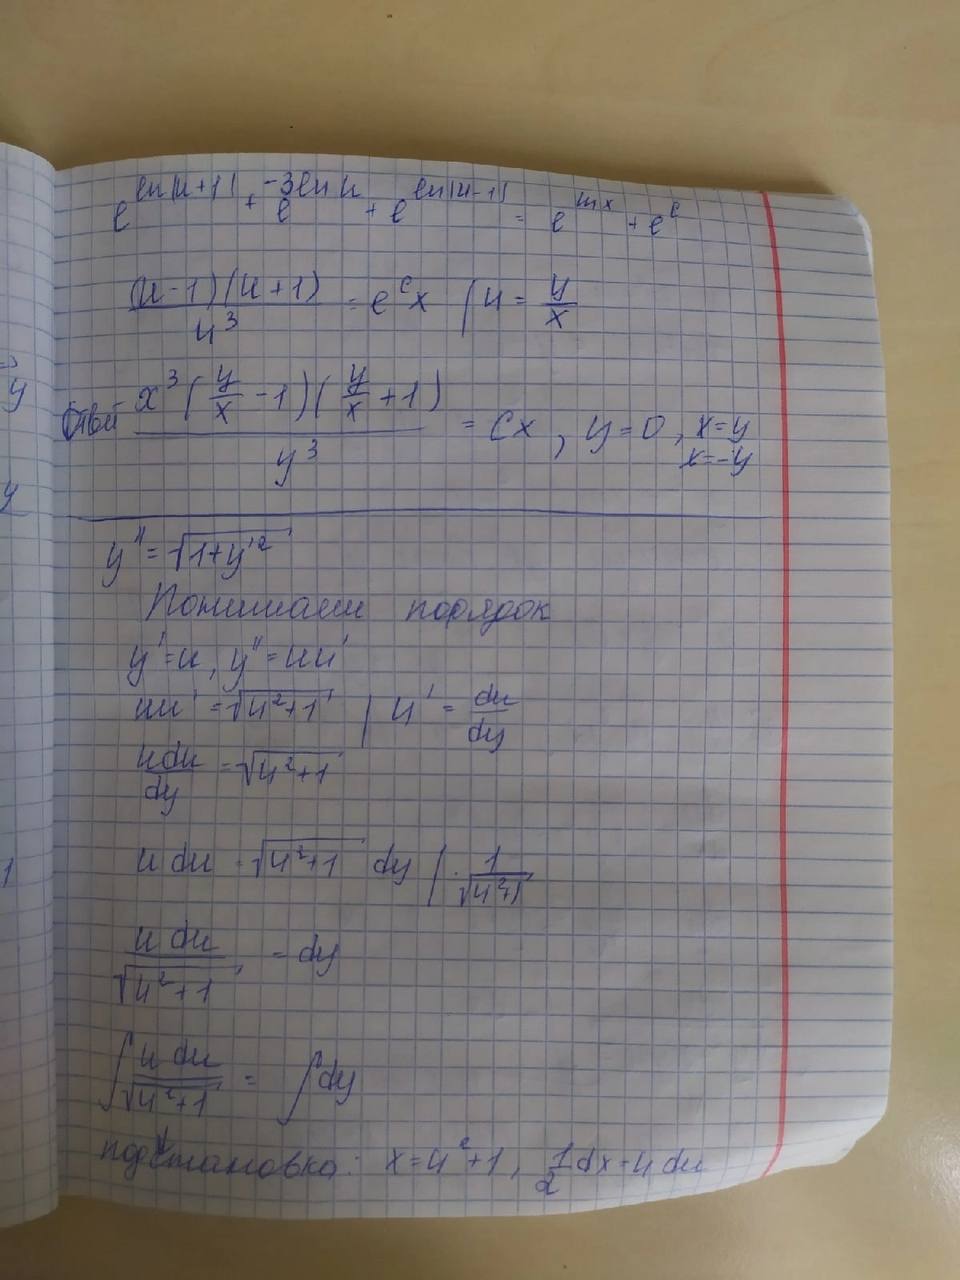 e^{ln|u+1|} + e^{-3ln u} + e^{ln|u-1|} = e^{ln x} + e^c
\frac{(u-1)(u+1)}{u^3} = e^c x | u = \frac{y}{x}
Ответ \frac{x^3(\frac{y}{x}-1)(\frac{y}{x}+1)}{y^3} = Cx, y=0, x=y
x=-y
y'' = \sqrt{1+y'^2}
Понижаем порядок
y'=u, y''=uu'
uu' = \sqrt{u^2+1} | u' = \frac{du}{dy}
\frac{u du}{dy} = \sqrt{u^2+1}
u du = \sqrt{u^2+1} dy | · \frac{1}{\sqrt{u^2+1}}
\frac{u du}{\sqrt{u^2+1}} = dy
∫\frac{u du}{\sqrt{u^2+1}} = ∫dy
подстановка: x=u^2+1, \frac{1}{2}dx=u du
y
y
1